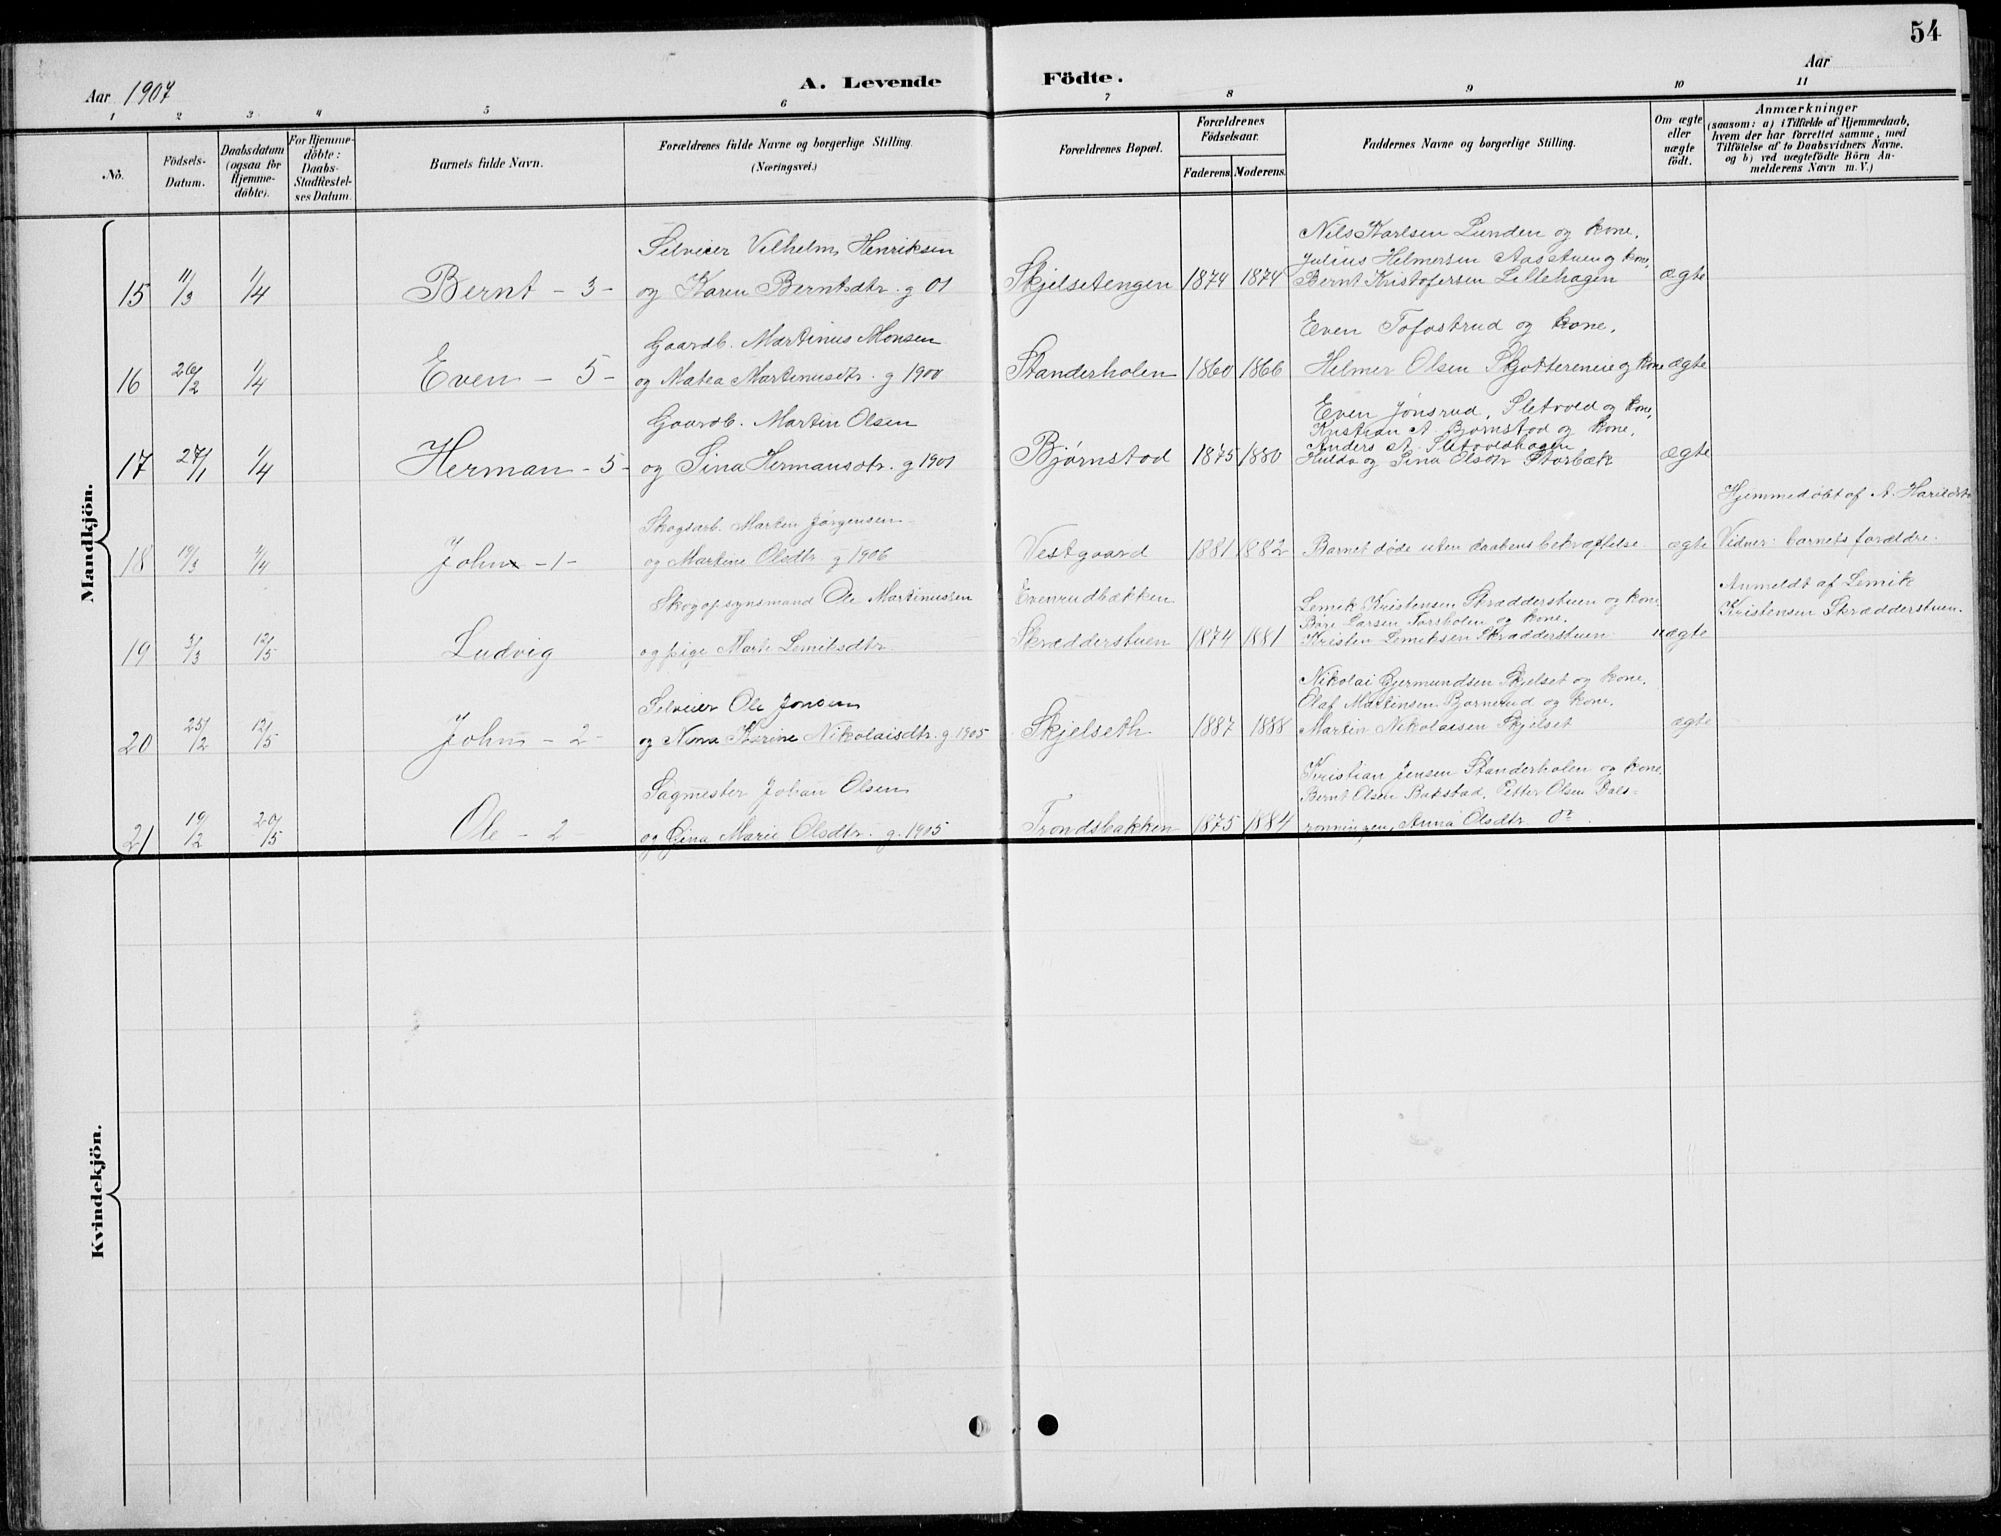 54
Aar 1907
A. Levende Födte.
Aar
1 2 3 4 5 6 7 8 9 10 11
No.
Födsels-Datum.
Daabsdatum (ogsaa for Hjemme-döbte).
For Hjemme-döbte: Daabs-Stadfæstel-ses Datum.
Barnets fulde Navn.
Forældrenes fulde Navne og borgerlige Stilling. (Næringsvei.)
Forældrenes Bopæl.
Forældrenes Födselsaar.
Faderens. Moderens.
Faddernes Navne og borgerlige Stilling.
Om ægte eller uægte født.
Anmærkninger
(saasom: a) i Tilfælde af Hjemmedaab,
hvem der har forrettet samme, med
Tilföielse af to Daabsvidners Navne.
og b) ved uægtefödte Börn An-
melderens Navn m.V.)
Mandkjön.
Selveier Vilhelm Henriksen
Nils Karlsen Lunden og kone,
Julius Helmersen Aasstuen og kone,
15 11/3 1/4 Bernt - 3 - og Karen Berntsdtr. g 01 Skjelsetengen 1874 1874 Bernt Kristofersen Lillehagen ægte
Gaardb. Martinus Monsen
Even Tofastrud og kone,
16 26/2 1/4 Even - 5 - og Matea Martinusdtr. g 1900 Standerholen 1860 1866 Helmer Olsen Skjottereneie og kone ægte
Gaardb. Martin Olsen
Even Jönsrud, Sletvold og kone,
Kristian A. Bjørnstad og kone,
Anders A. Sletvoldhagen
17 27/1 1/4 Herman - 5 - og Sina Hermansdtr. g 1901 Bjørnstad 1875 1880 Hulda og Sina Olsdtr Storbæk ægte
Hjemmedøbt af A. Harildst
Skogsarb. Martin Jørgensen
18 19/3 4/4 John - 1 - og Martine Olsdtr g 1906 Vestgaard 1881 1882 Barnet døde uten daabens bekræftelse ægte Vidner: barnets forældre.
Skogopsynsmand Ole Martinussen Evenrudbakken
Lemik Kristensen Skrædderstuen og kone,
Anmeldt af Lemik
Kristensen Skrædderstuen.
Larsen Torsholen og kone,
19 3/3 12/5 Ludvig og pige Marte Lemiksdtr Skrædderstuen 1874 1881 Kristen Lemiksen Skrædderstuen uægte
Selveier Ole Jonsen
Nikolai Gjermundsen Skjelset og kone,
Olaf Martinsen Bjørnerud og kone,
20 25/2 12/5 John - 2 - og Nina Karine Nikolaisdtr. g 1905 Skjelseth 1887 1888 Martin Nikolaisen Skjelset ægte
Sagmester Johan Olsen
Kristian Jensen Standerholen og kone,
Bernt Olsen Bakstad, Petter Olsen Dals-
21 19/2 20/5 Ole - 2 og Gina Marie Olsdtr. g. 1905 Trondsbakken 1875 1884 rønningen, Anna Olsdtr. do.
Kvindekjön.